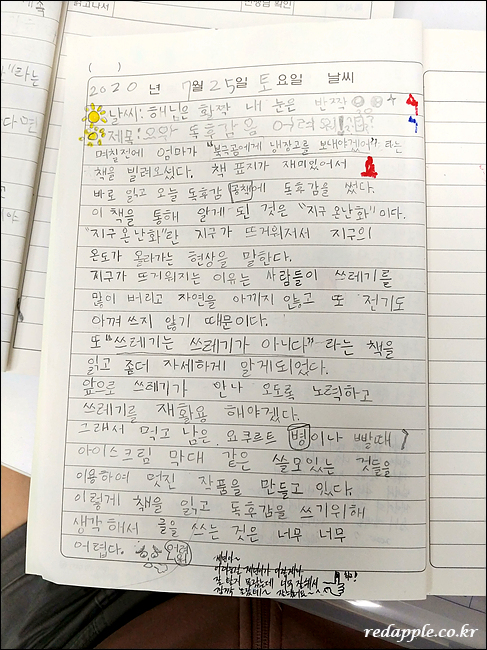 읽고나서
( )
2020 년 7월 25일 토 요일 날씨
날씨: 해님은 활짝 내 눈은 반짝
제목: 오와 독후감 음 어려워!
며칠전에 엄마가 "북극곰에게 냉장고를 보내야겠어" 라는
책을 빌려오셨다. 책 표지가 재미있어서
바로 읽고 오늘 독후감 공책에 독후감을 썼다.
이 책을 통해 알게 된 것은 "지구 온난화" 이다.
"지구 온난화"란 지구가 뜨거워져서 지구의
온도가 올라가는 현상을 말한다.
지구가 뜨거워지는 이유는 사람들이 쓰레기를
많이 버리고 자연을 아끼지 않고 또 전기도
아껴 쓰지 않기 때문이다.
또 "쓰레기는 쓰레기가 아니다" 라는 책을
읽고 좀더 자세하게 알게되었다.
앞으로 쓰레기가 안나 오도록 노력하고
쓰레기를 재활용 해야겠다.
그래서 먹고 남은 요쿠르트 병이나 빨때
아이스크림 막대 같은 쓸모있는 것들을
이용하여 멋진 작품을 만들고 있다.
이렇게 책을 읽고 독후감을 쓰기위해
생각해서 글을 쓰는 것은 너무 너무
어렵다.
redapple.co.kr